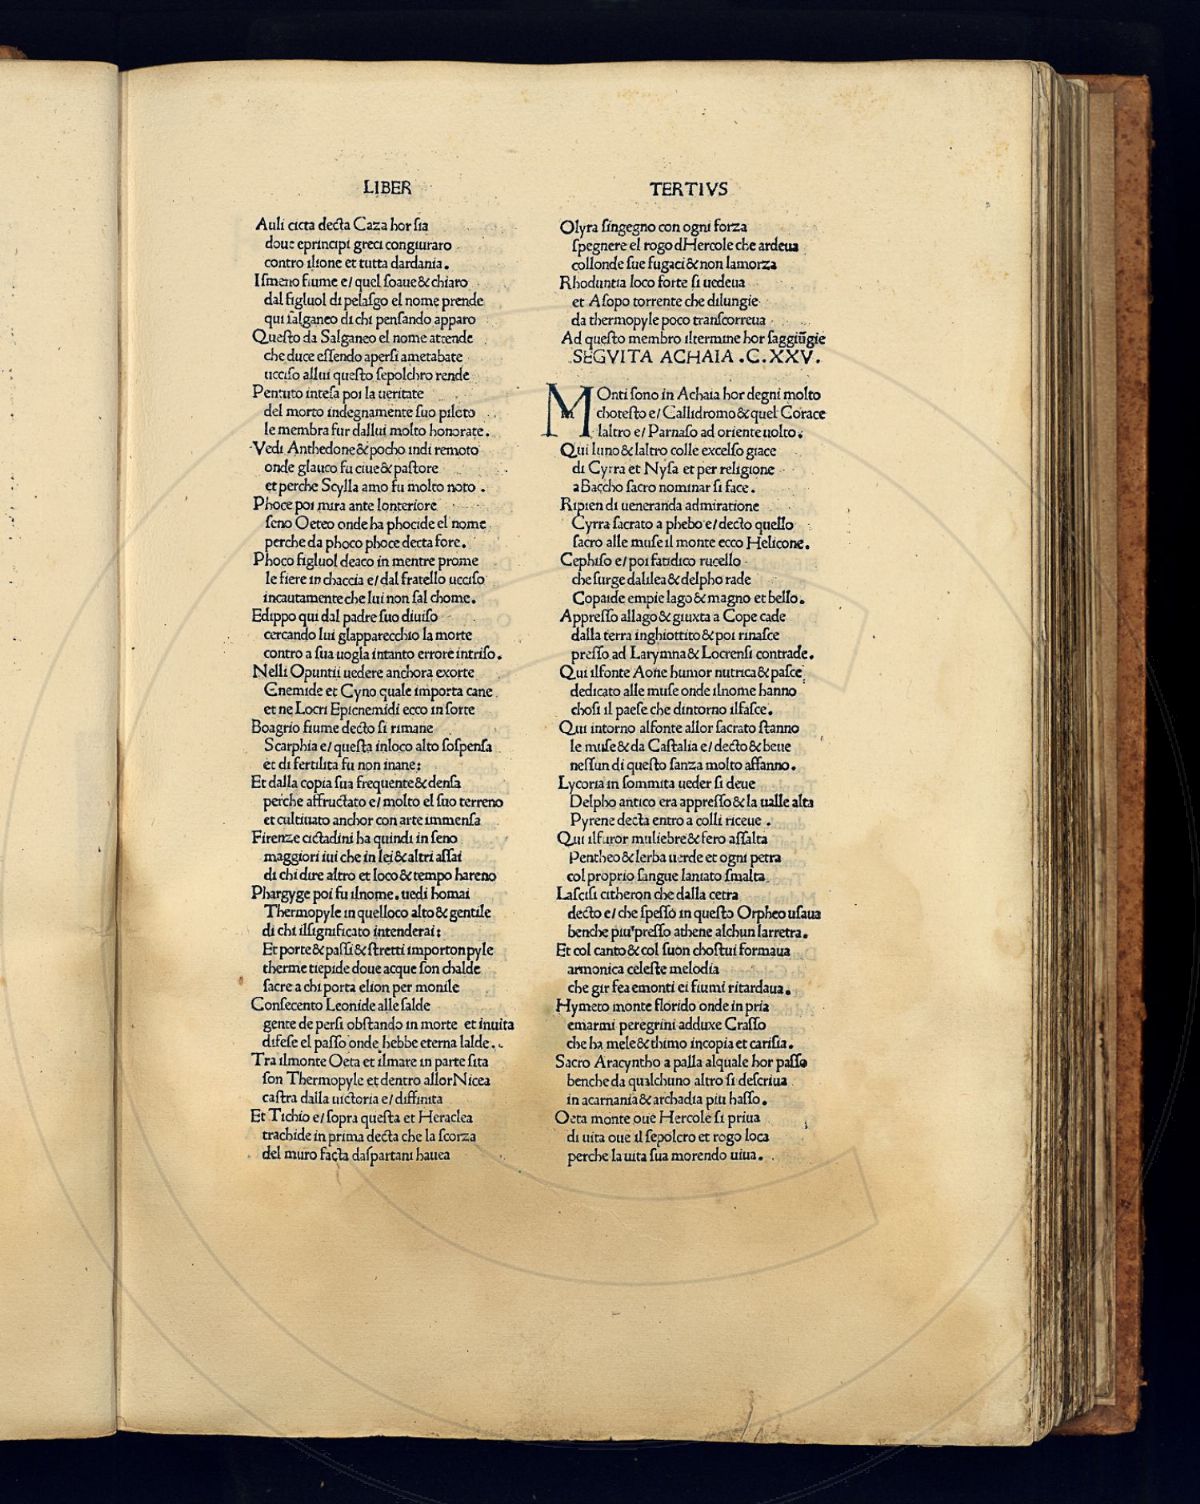 LIBER
Auli cicta decta Caza hor sia
doue eprincipi greci congiuraro
contro ilione et tutta dardania.
Ismeno fiume e/ quel soaue & chiaro
dal figluol di pelasgo el nome prende
qui salganeo di chi pensando apparo
Questo da Salganeo el nome attende
che duce essendo apersi ametabate
ucciso allui questo sepolchro rende
Pentuto intesa poi la ueritate
del morto indegnamente suo piloto
le membra fur dallui molto honorate.
Vedi Anthedone & pocho indi remoto
onde glauco fu ciue & pastore
et perche Scylla amo fu molto noto.
Phoce poi mira ante lonteriore
seno Oeteo onde ha phocide el nome
perche da phoco phoce decta fore.
Phoco figluol deaco in mentre prome
le fiere in chaccia e/ dal fratello ucciso
incautamente che lui non sal chome.
Edippo qui dal padre suo diuiso
cercando lui glapparecchio la morte
contro a sua uogla intanto errore intriso.
Nelli Opuntii uedere anchora exorte
Cnemide et Cyno quale importa cane
et ne Locri Epicnemidi ecco in sorte
Boagrio fiume decto si rimane
Scarphia e/ questa inloco alto sospensa
et di fertilita fu non inane:
Et dalla copia sua frequente & densa
perche affructato e/ molto el suo terreno
et cultiuato anchor con arte immensa
Firenze cictadini ha quindi in seno
maggiori iui che in lei & altri assai
di chi dire altro et loco & tempo hareno
Phargyge poi fu ilnome. uedi homai
Thermopyle in quelloco alto & gentile
di chi ilsignificato intenderai:
Et porte & passi & stretti importon pyle
therme tiepide doue acque son chalde
sacre a chi porta elion per monile
Consecento Leonide alle salde
gente de persi obstando in morte et inuita
difese el passo onde hebbe eterna lalde.
Tra ilmonte Oeta et ilmare in parte sita
son Thermopyle et dentro allor Nicea
castra dalla uictoria e/ diffinita
Et Tichio e/ sopra questa et Heraclea
trachide in prima decta che la scorza
del muro facta daspartani hauea
TERTIVS
Olyra singegno con ogni forza
spegnere el rogo dHercole che ardeua
collonde sue fugaci & non lamorza
Rhoduntia loco forte si uedeua
et Asopo torrente che dilungie
da thermopyle poco transcorreua
Ad questo membro iltermine hor saggiūgie
SEGVITA ACHAIA .C.XXV.
MOnti sono in Achaia hor degni molto
chotesto e/ Callidromo & quel Corace
laltro e/ Parnaso ad oriente uolto.
Qui luno & laltro colle excelso giace
di Cyrra et Nysa et per religione
a Baccho sacro nominar si face.
Ripien di ueneranda admiratione
Cyrra sacrato a phebo e/ decto quello
sacro alle muse il monte ecco Helicone.
Cephiso e/ poi fatidico rucello
che surge dalilea & delpho rade
Copaide empie lago & magno et bello.
Appresso allago & giuxta a Cope cade
dalla terra inghiottito & poi rinasce
presso ad Larymna & Locrensi contrade.
Qui ilfonte Aone humor nutrica & pasce
dedicato alle muse onde ilnome hanno
chosi il paese che dintorno ilfasce.
Qui intorno alfonte allor sacrato stanno
le muse & da Castalia e/ decto & beue
nessun di questo sanza molto affanno.
Lycoria in sommita ueder si deue
Delpho antico era appresso & la ualle alta
Pyrene decta entro a colli riceue.
Qui ilfuror muliebre & fero assalta
Pentheo & lerba uerde et ogni petra
col proprio sangue laniato smalta
Lascisi citheron che dalla cetra
decto e/ che spesso in questo Orpheo usaua
benche piu presso athene alchun larretra.
Et col canto & col suon chostui formaua
armonica celeste melodia
che gir fea emonti ei fiumi ritardaua.
Hymeto monte florido onde in pria
emarmi peregrini adduxe Crasso
che ha mele & thimo incopia et carisia.
Sacro Aracyntho a palla alquale hor passo
benche da qualchuno altro si descriua
in acarnania & archadia piu basso.
Oeta monte oue Hercole si priua
di uita oue il sepolcro et rogo loca
perche la uita sua morendo uiua.